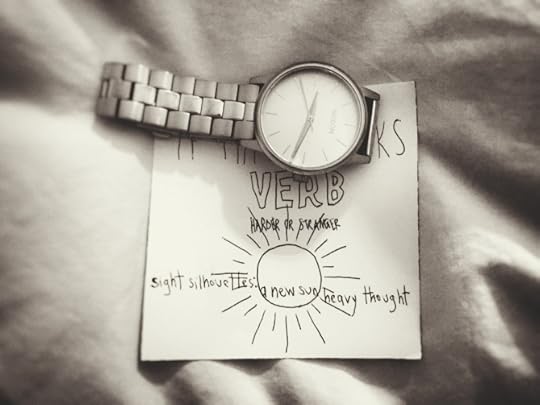 NIXON
VERB
HARDER OR STRANGER
sight silhouettes: a new sun, heavy thought